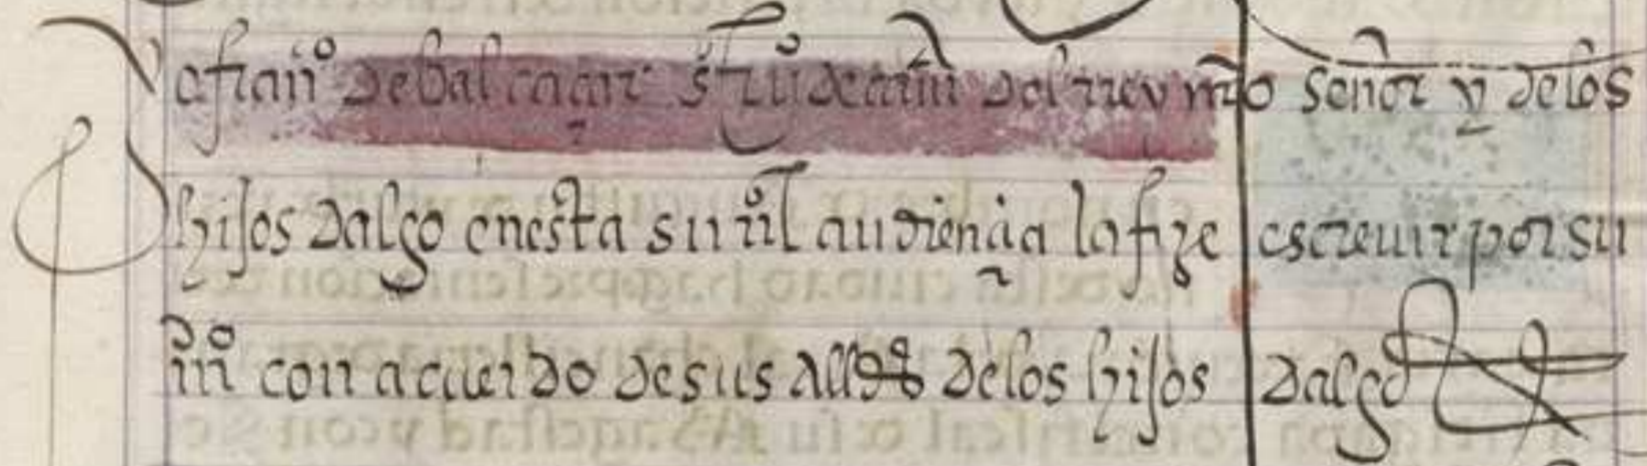 de balcaçar s del rrey nro señor y delos
hijos dalgo enesta su rl audiençia la fize escreuir por su
m con acuerdo de sus alldes delos hijos dalgo